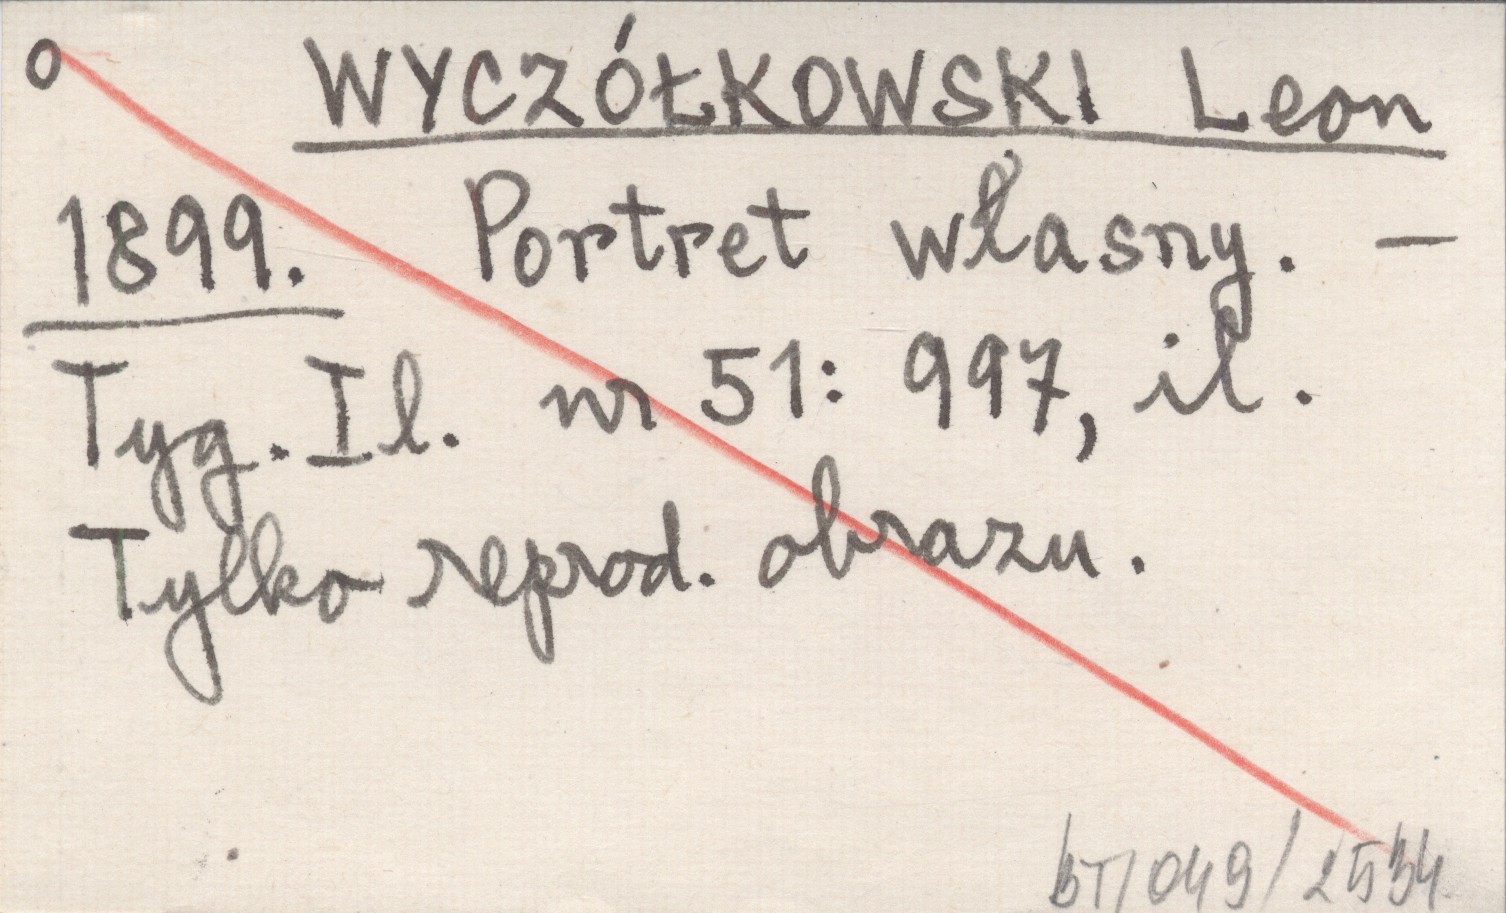 o WYCZÓŁKOWSKI Leon
1899. Portret własny. —
Tyg. Il. nr 51: 997, il.
Tylko reprod. obrazu.
BT/049/2534